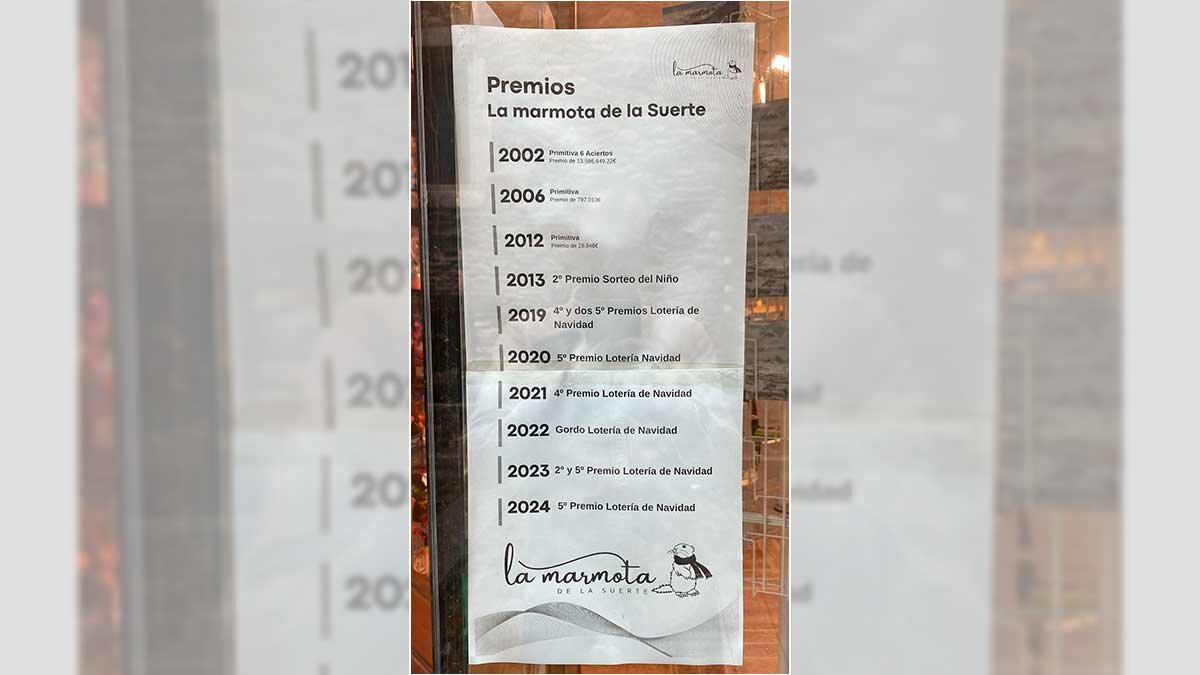 la marmota
Premios
La marmota de la Suerte
2002 Primitiva 6 Aciertos
Premio de 13.586.649.22€
2006 Primitiva
Premio de 797.013€
2012 Primitiva
Premio de 29.846€
2013 2º Premio Sorteo del Niño
2019 4º y dos 5º Premios Lotería de
Navidad
2020 5º Premio Lotería Navidad
2021 4º Premio Lotería de Navidad
2022 Gordo Lotería de Navidad
2023 2º y 5º Premio Lotería de Navidad
2024 5º Premio Lotería de Navidad
la marmota
DE LA SUERTE